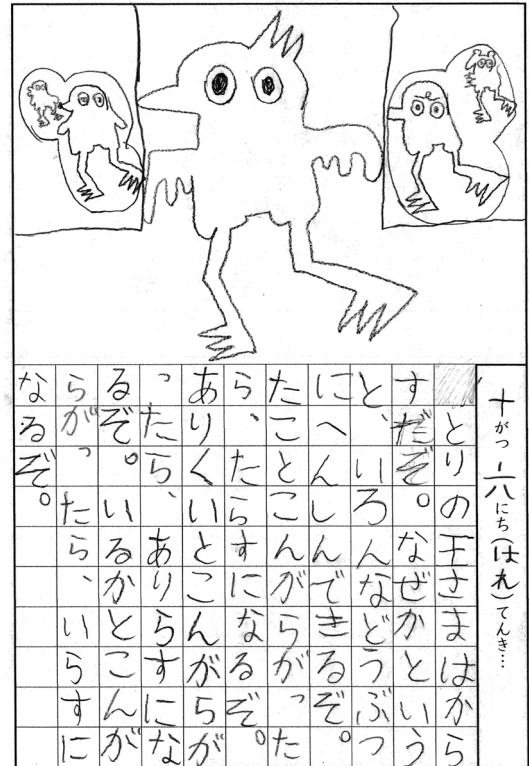 十がつ一八にち(はれ)てんき…
とりの王さまはから
すだぞ。なぜかという
と、いろんなどうぶつ
にへんしんできるぞ。
たことこんがらがった
ら、たらすになるぞ。
ありくいとこんがらが
ったら、ありらすにな
るぞ。いるかとこんが
らがったら、いらすに
なるぞ。